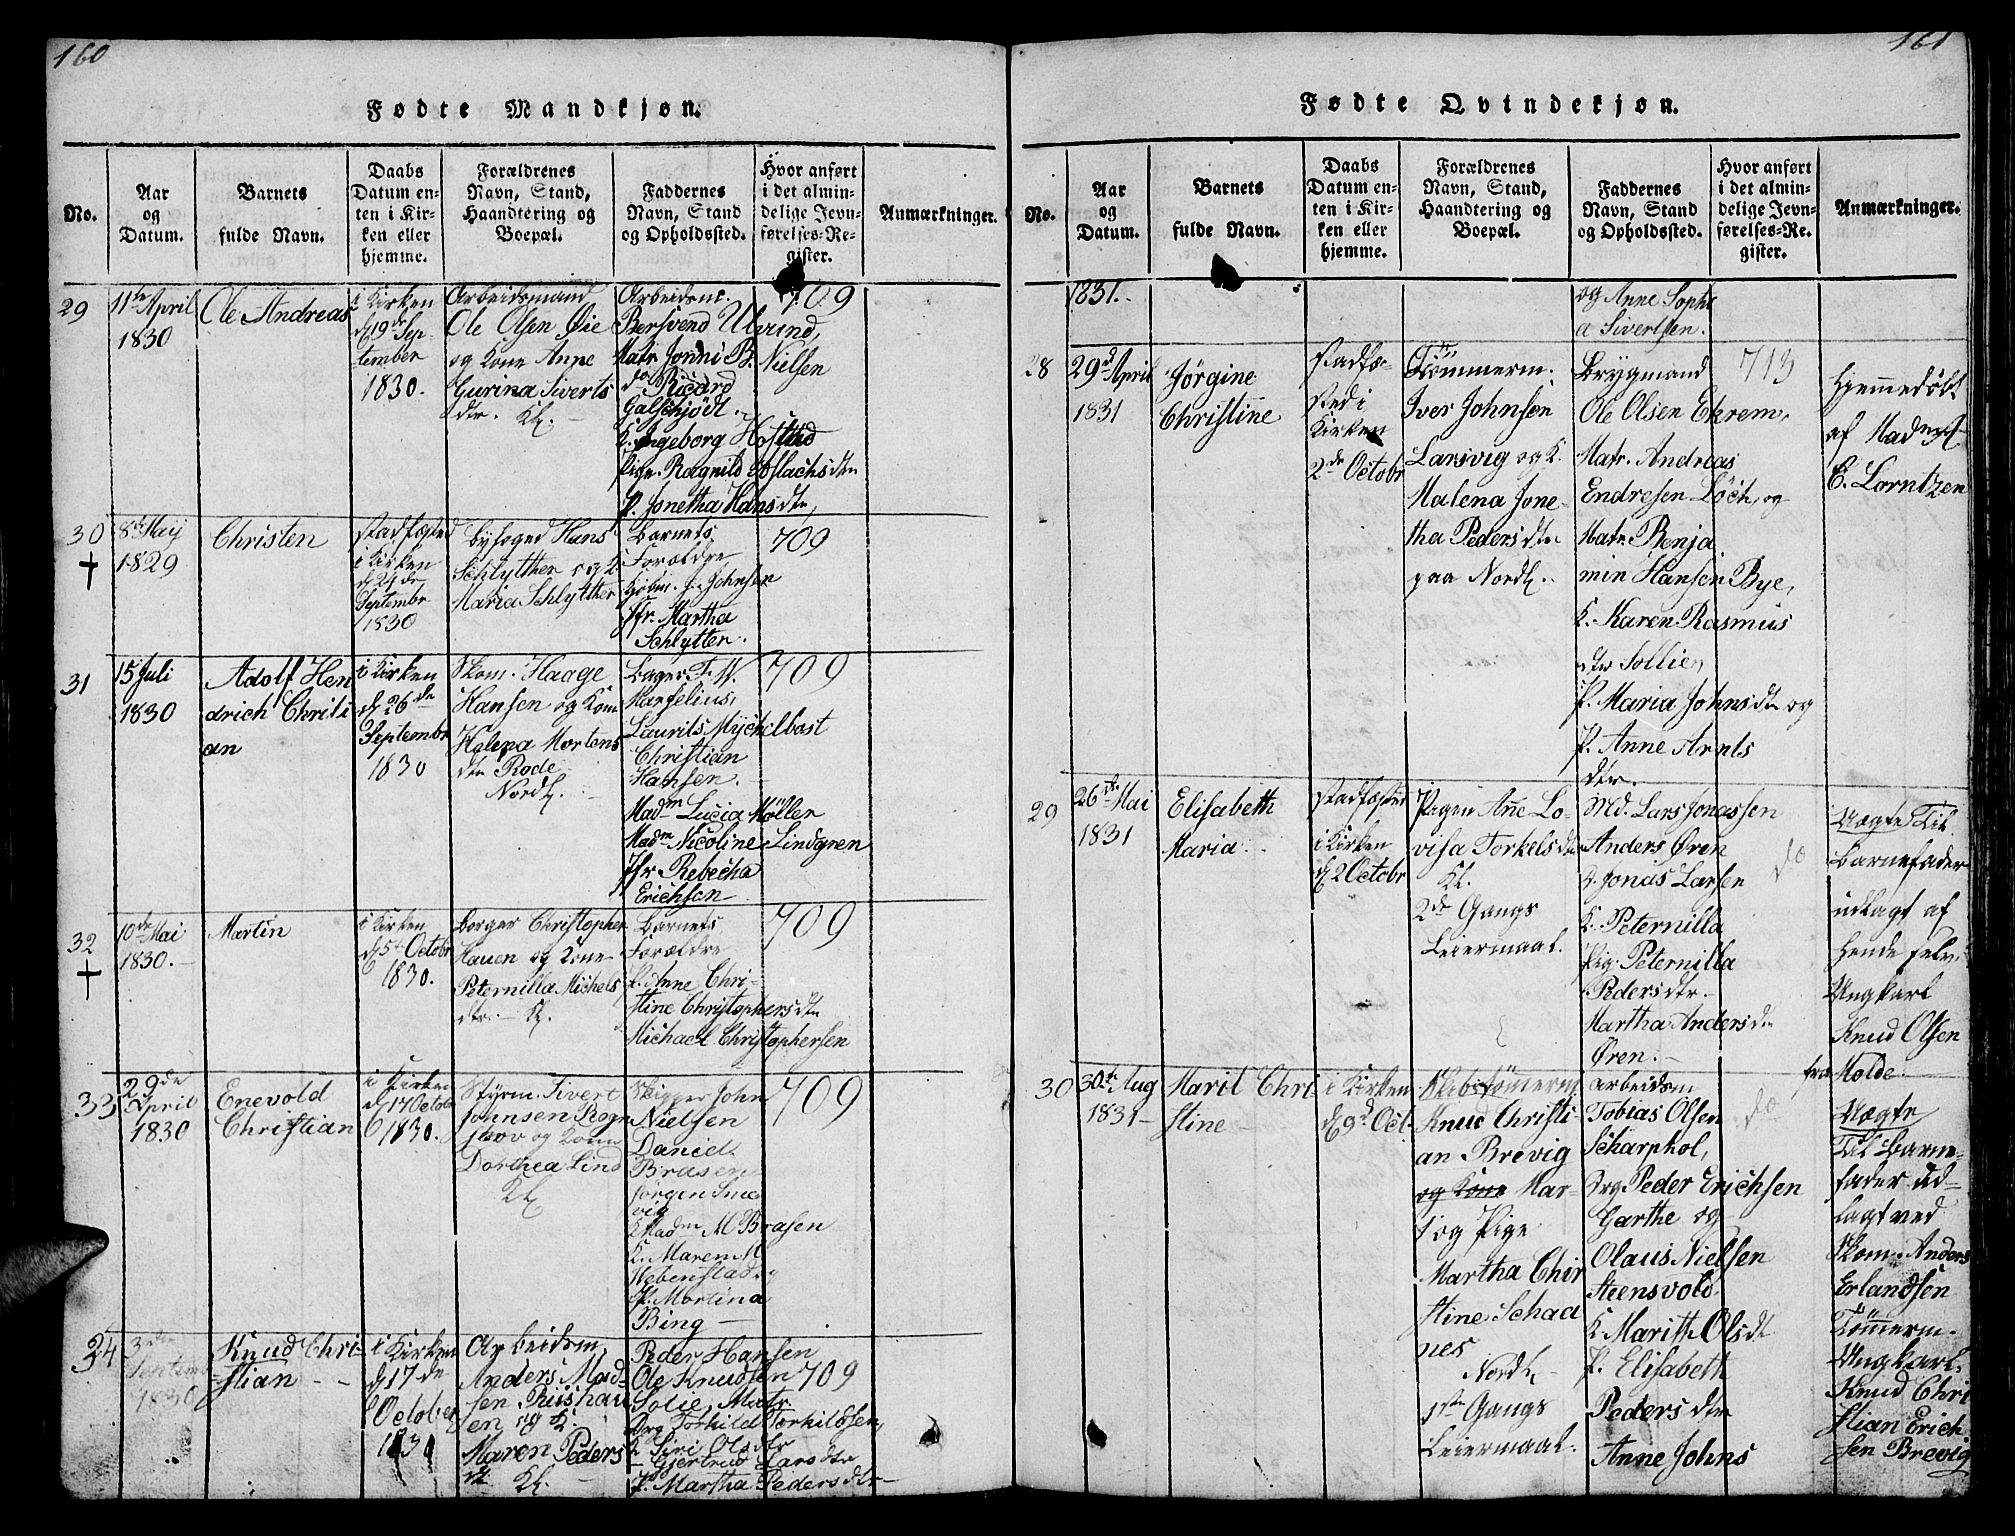 160
Fødte Mandkjøn.
No.
Aar
og
Datum.
Barnets
fulde Navn.
Daabs
Datum en-
ten i Kir-
ken eller
hjemme.
Forældrenes
Navn, Stand,
Haandtering og
Boepæl.
Faddernes
Navn, Stand
og Opholdssted.
Hvor anført
i det almin-
delige Jevn-
førelses-Re-
gister.
Anmærkninger.
29
11te April
1830
Ole Andreas
i Kirken
d 19de Sep
tember
1830.
Arbeidsmand
Ole Olsen Øie
og Kone Anne
Gurina Siverts
dtr. Kl.
Arbeidsm.
Bersvend Ulvund,
Matr Jonni B. Nielsen
do Ricard
Galschjödt.
K. Ingeborg Hostad
Pige. Ragnild Aslachsdtr
P. Jonetha Hansdtr,
709
30
8de Maij
1829
Christen
Stadfæsted
i Kirken
d 21de
Septembr
1830
Byfoged Hans
Schlytter og K.
Maria Schlytter
Barnets
Forældre
Johnsen
Jfr. Martha
Schlytter.
709
31
15 Juli
1830
Adolf Hen
drich Christi
an
i Kirken
d 26de
Septembr
1830
Skom. Haage
Hansen og Kone
Helena Mortens
dtr Rode
Nordl.
Bager F. W.
Hanselius,
Laurits Myckelbost
Christian
Hansen.
Madm Lucia Möller
Madm Nicoline Lindgren
Jfr Rebecha
Erichsen
709
32
10de Mai
1830.
Martin
i Kirken
d 5te Octobr
1830.
Borger Christopher
Hauen og Kone
Peternilla Michels
dtr. Kl.
Barnets
Forældre
P. Anne Chri-
stine Christophersdtr
Michael Christophersen
709
33
29de
April
1830
Enevold
Christian
i Kirken
d 17 Octobr
1830.
Styrm. Sivert
Johnsen Rogn
skov og Kone
Dorthea Lind
Kl.
Skipper John
Nielsen
Daniel
Brasen
Jörgen Sme
vig
Madm M Brasen
K. Maren M
Hebenstad,
P. Martina
Bing
709
34
3de
Septemb
1830
Knud Chri-
stian
i Kirken
d 17de
October
1830
Arbeidsm.
Anders Mad-
sen Riishau
en og K.
Maren Peders
dtr Kl.
Peder Hansen
Ole Knudsen
Solie, Matr.
Drg Torkild Torkildsen,
K Siri Olsdtr
Gjertrud Larsdtr
P. Martha Pedersdtr
709
161
Fødte Qvindekjøn.
No.
Aar
og
Datum.
Barnets
fulde Navn.
Daabs
Datum en-
ten i Kir-
ken eller
hjemme.
Forældrenes
Navn, Stand,
Haandtering og
Boepæl.
Faddernes
Navn, Stand
og Opholdssted.
Hvor anført
i det almin-
delige Jevn-
førelses-Re-
gister.
Anmærkninger.
1831.
og Anne Sophi
a Sivertsen.
28
29d April
1831
Jörgine
Christine
Stadfæ-
sted i
Kirken
2de Octobr
Tömmerm.
Iver Johnsen
Larsvig og K.
Malena Jone-
tha Pedersdtr
paa Nordl.
Brygmand
Ole Olsen Ekrem,
Matr. Andreas
Endresen Löch, og
Matr. Benja
min Hansen Bye,
K. Karen Rasmus
dtr Sollie,
P. Maria Johnsdtr og
P. Anne Arnts
dtr.
713
Hjemmedöbt
af Madm
C. Lorntzen
29
26de Mai
1831
Elisabeth
Maria
Stadfæsted
i Kirken
d 2 Octobr
Pigen Anne Lo-
visa Torkelsdtr
Kl.
2de Gangs
Leiermaal.
Md. Lars Jonassen
Anders Øren
D. Jonas Larsen
K. Peternilla
Pig. Peternilla
Pedersdtr.
Martha Andersdtr
Øren.
do
Uægte Til
Barnefader
udlagt af
hende selv.
Ungkarl
Knud Olsen
fra Molde.
30
30te Aug
1831
Marit Chri-
stine
i Kirken
d 9d Oct.
Knud Christi-
an Brevig
og Kone Mar-
t og Pige
Martha Chir
stine Schaa
nes
Nordl
1ste Gangs
Leiermaal.
Arbeidsm
Tobias Olsen
Scharphol,
Drg Peder Erichsen
Garthe og
Olaus Nielsen
Steensvold
K Marith Olsdt
P. Elisabeth
Pedersdtr
Anne Johns
do
Uægte
Til Barne-
fader ud-
lagt ved
Skom. Anders
Erlandsen
Tömmerm.
Ungkarl.
Knud Chri
stian Erich
sen Brevig